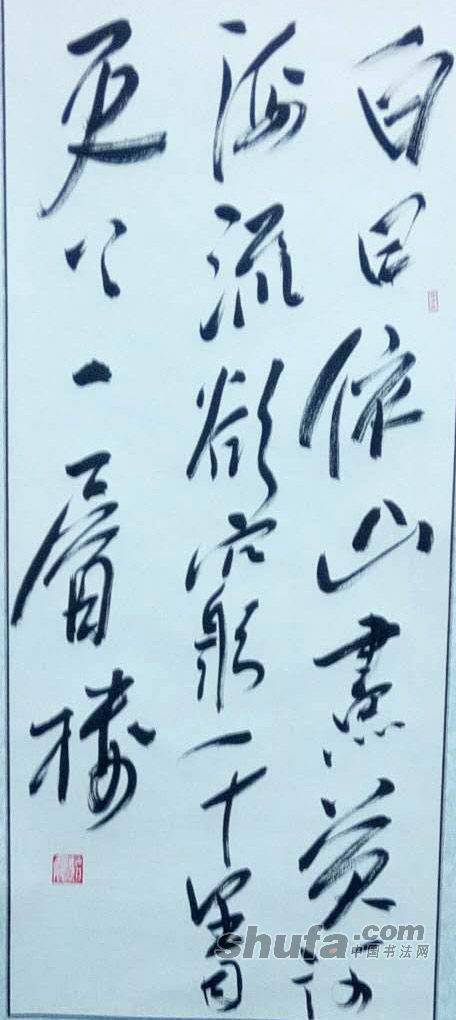 白日依山盡黄河
海流欲窮千里目
更上一層樓
shufa.com
中国书法网